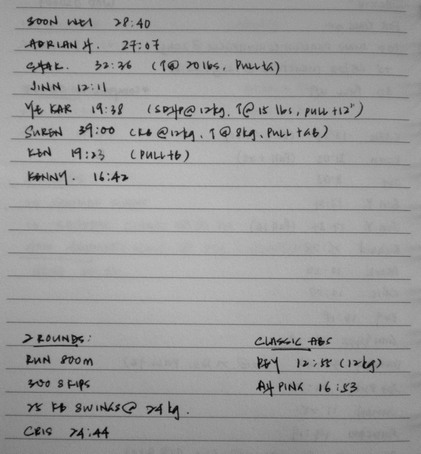 SOON WEI 28:40
ADRIAN H. 27:07
32:26 (T@ 20 lbs, PULL+G)
JINN 12:11
YE KAR 19:38 (SDHP@12kg, T@15 lbs, PULL+12")
SUREN 39:00 (KB@12kg, T@8kg, PULL+GB)
KEN 19:23 (PULL+B)
KENNY. 16:42
2 ROUNDS:
RUN 800m
300 SKIPS
25 KB SWINGS@ 24kg.
CRIS 24:44
CLASSIC ABS
REY 12:55 (12kg)
AH PING 16:53